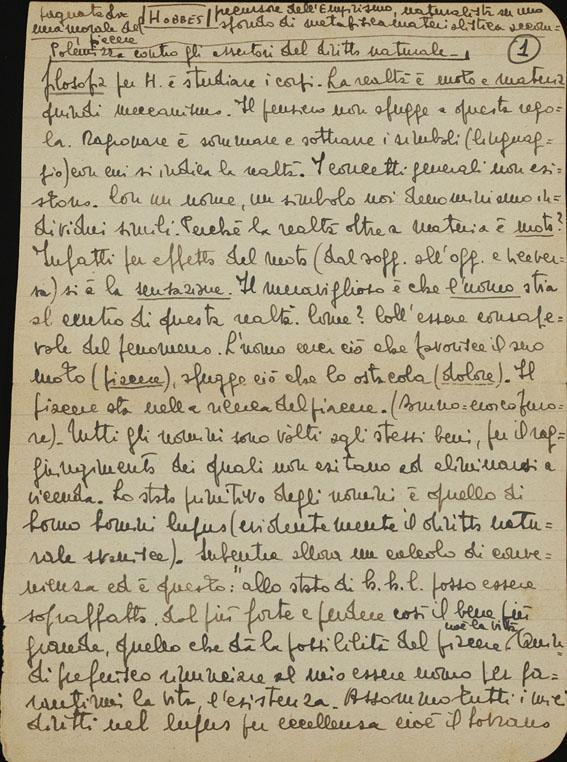 HOBBES precursore dell'Empirismo, naturalista su uno
una morale del piacere sfondo di metafisica materialistica
Polemizza contro gli assertori del diritto naturale.
1
filosofia per H. è studiare i corpi. La realtà è moto e materia
quindi meccanismo. Il pensiero non sfugge a questa rego=
la. Ragionare è sommare e sottrarre i simboli (linguag=
gio) con cui si indica la realtà. I concetti generali non esi=
stono. Con un nome, un simbolo noi denominiamo in=
dividui simili. Perché la realtà oltre a materia è moto?
Infatti per effetto del moto (dal sogg. all'ogg. e vicever=
sa) si ha la sensazione. Il meraviglioso è che l'uomo stia
al centro di questa realtà. Come? Coll'essere consape=
vole del fenomeno. L'uomo cerca ciò che favorisce il suo
moto (piacere), sfugge ciò che lo ostacola (dolore). Il
piacere sta nella ricerca del piacere. (Bruno = eroico furo=
re). Tutti gli uomini sono volti agli stessi beni, per il rag=
giungimento dei quali non esitano ad eliminarsi a
vicenda. Lo stato primitivo degli uomini è quello di
homo homini lupus (evidentemente il diritto natu=
rale svanisce). Subentra allora un calcolo di conve=
nienza ed è questo: "allo stato di h. h. l. posso essere
sopraffatto dal più forte e perdere così il bene più
grande, cioè la vita, quello che dà la possibilità del piacere. Quin=
di preferisco rinunciare al mio essere uomo per ga=
rantirmi la vita, l'esistenza. Assommo tutti i miei
diritti nel lupus per eccellenza cioè il Sovrano